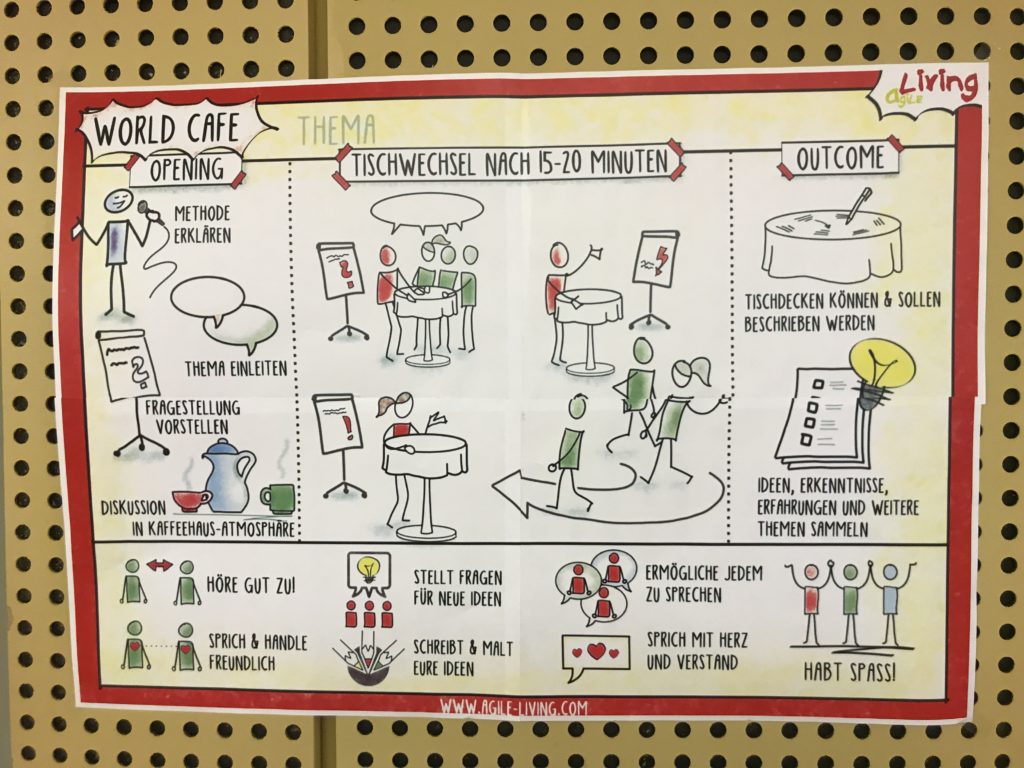 agile Living
WORLD CAFE
THEMA
OPENING
METHODE
ERKLÄREN
THEMA EINLEITEN
?
FRAGESTELLUNG
VORSTELLEN
DISKUSSION
IN KAFFEEHAUS-ATMOSPHÄRE
TISCHWECHSEL NACH 15-20 MINUTEN
?
!
OUTCOME
TISCHDECKEN KÖNNEN & SOLLEN
BESCHRIEBEN WERDEN
IDEEN, ERKENNTNISSE,
ERFAHRUNGEN UND WEITERE
THEMEN SAMMELN
HÖRE GUT ZU!
SPRICH & HANDLE
FREUNDLICH
STELLT FRAGEN
FÜR NEUE IDEEN
SCHREIBT & MALT
EURE IDEEN
ERMÖGLICHE JEDEM
ZU SPRECHEN
SPRICH MIT HERZ
UND VERSTAND
HABT SPASS!
WWW.AGILE-LIVING.COM